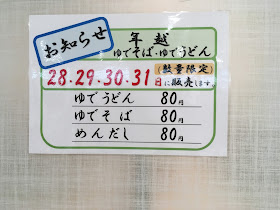 お知らせ
年越
ゆでそば・ゆでうどん
28.29.30.31日(数量限定)に販売します。
ゆでうどん 80円
ゆでそば 80円
めんだし 80円